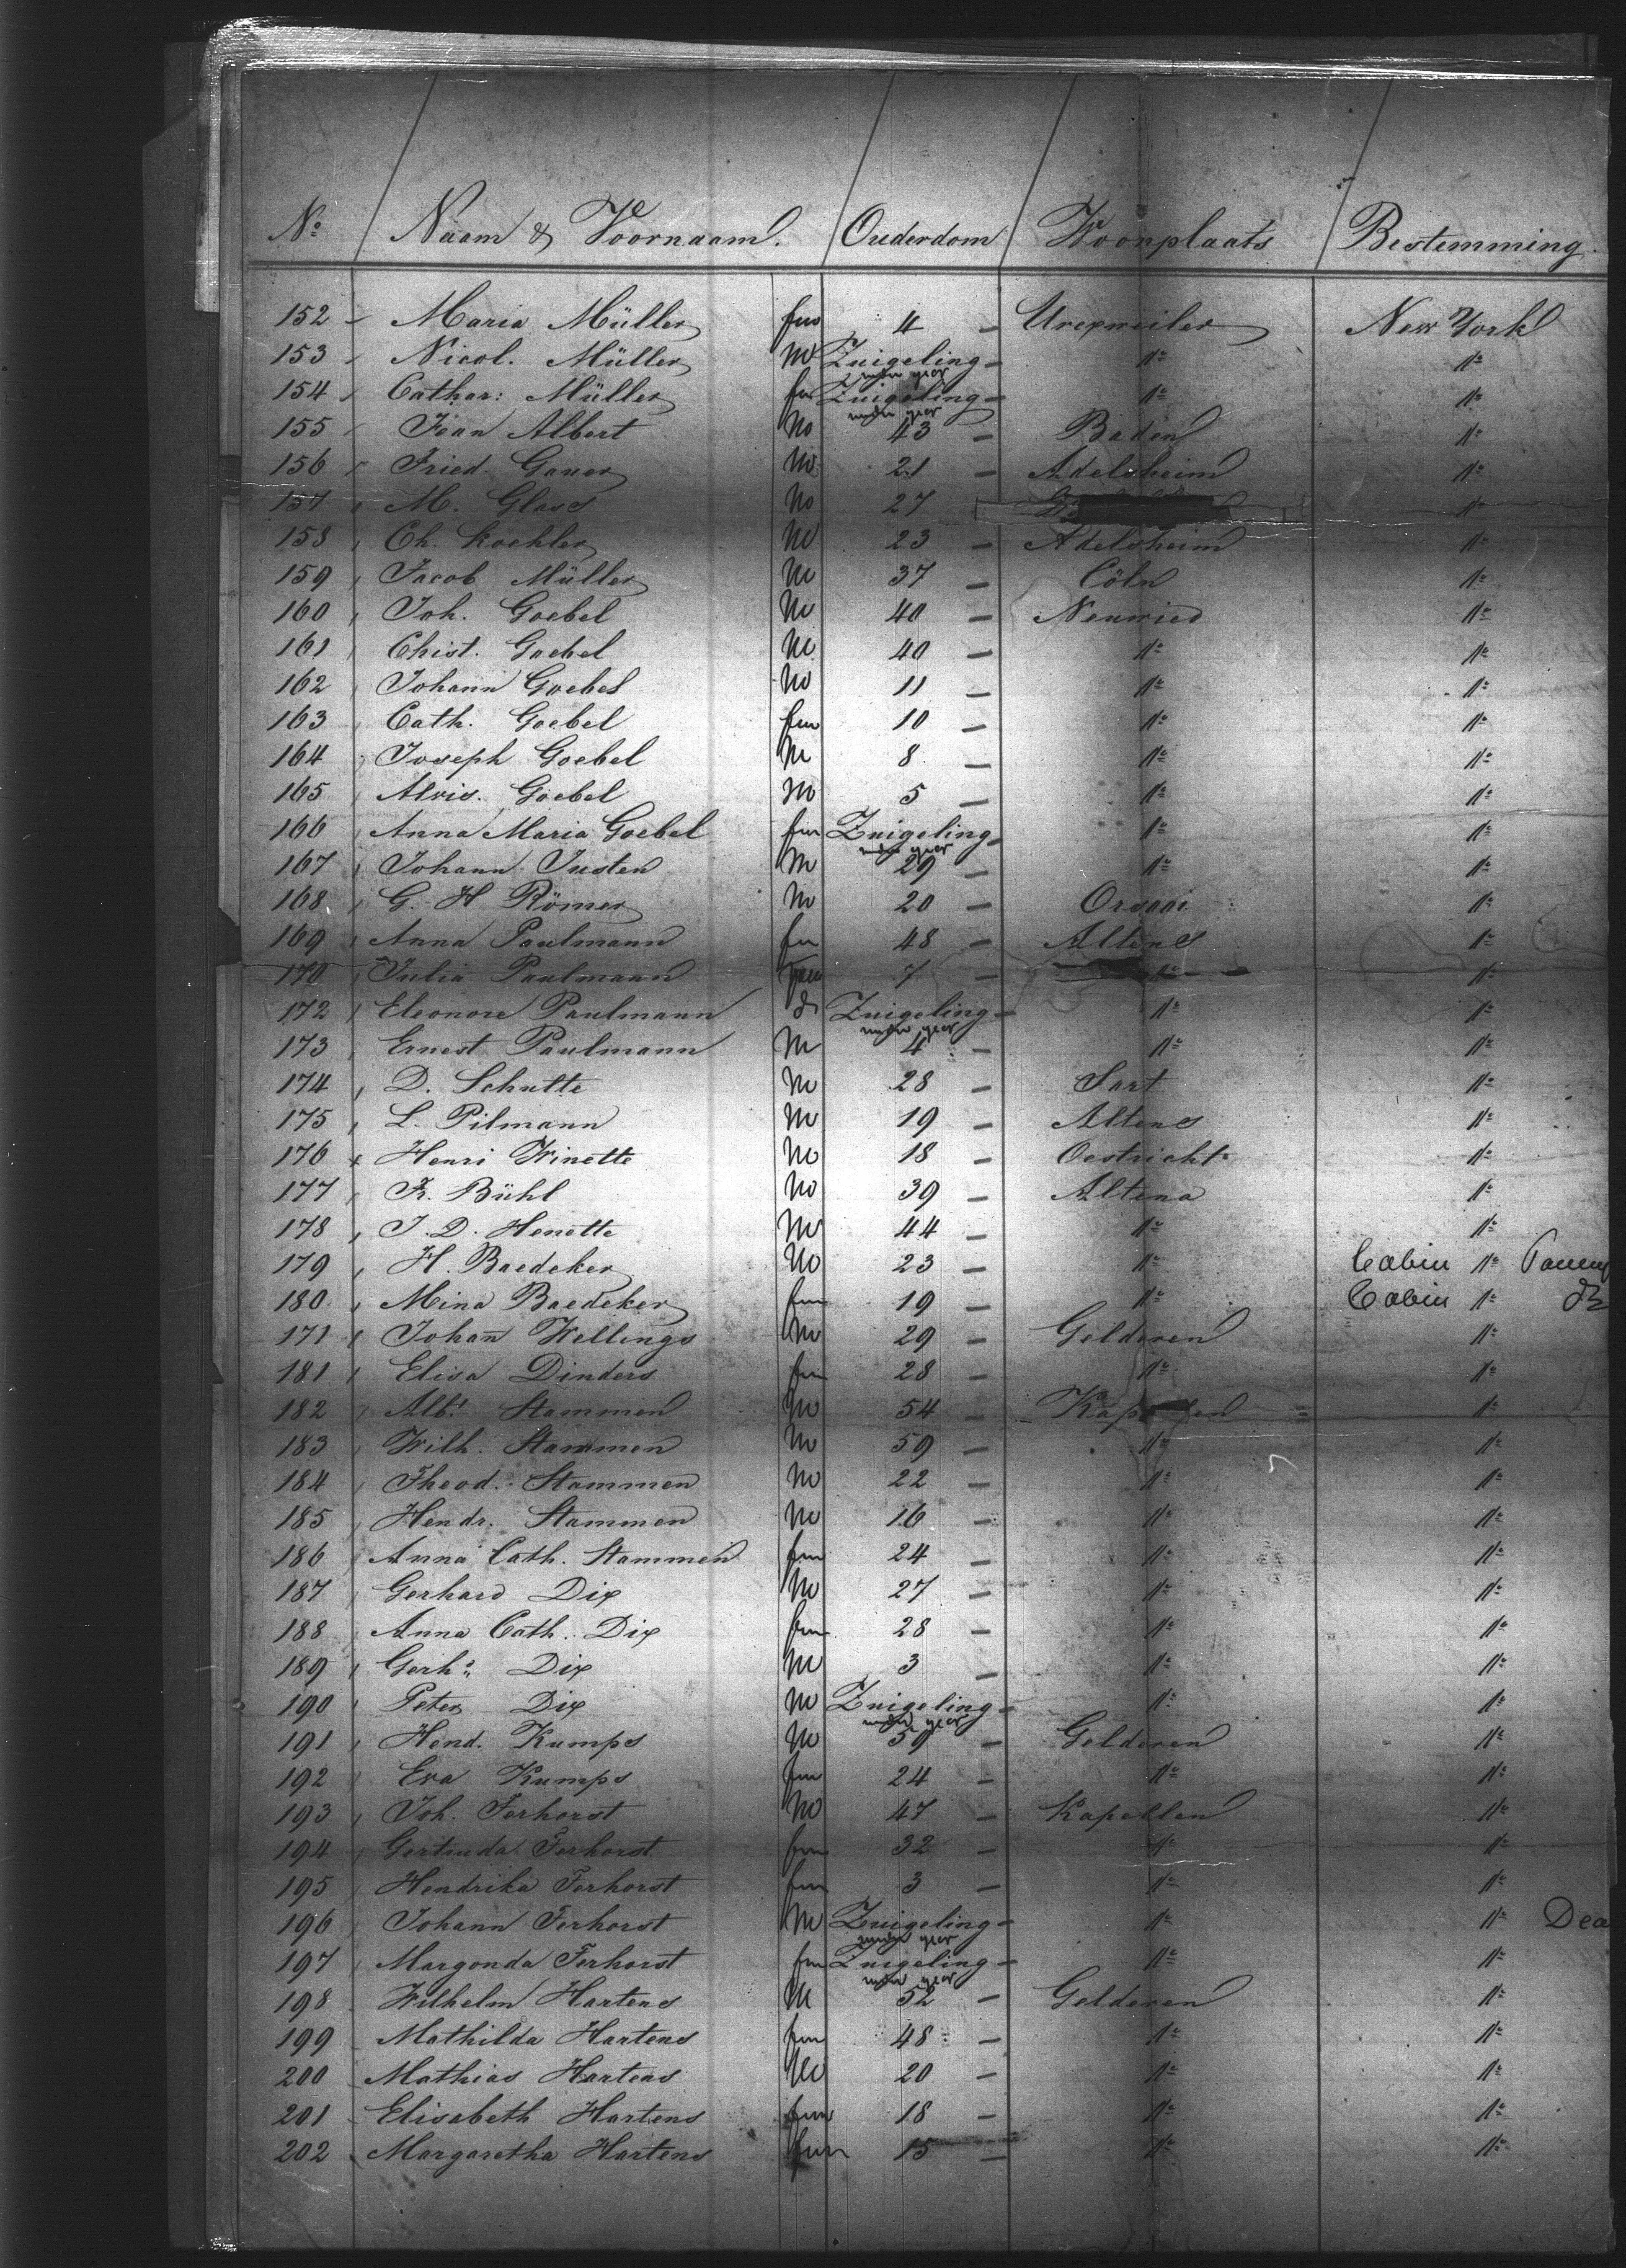 No Naam & Voornaam. Ouderdom Woonplaats Bestemming.
152 Maria Müller fm 4 — Urexweiler New York
153 Nicol. Müller M Zuigeling — "
under year
154 Cathar: Müller fm Zuigeling — " "
under year
155 Jean Albert M 43 — Baden "
156 Fried. Gauer M 21 — Adelsheim "
157 M. Glass M 27 "
158 Ch. Koehler M 23 — Adelsheim "
159 Jacob Müller M 37 — Cöln "
160 Joh. Goebel M 40 — Neuwied "
161 Chist. Goebel M 40 — " "
162 Johann Goebel M 11 — " "
163 Cath. Goebel fm 10 — " "
164 Joseph Goebel M 8 — " "
165 Alvis. Goebel M 5 — " "
166 Anna Maria Goebel fm Zuigeling — " "
under year
167 Johann Justen M 29 — " "
168 G. H Römer M 20 — Orsooi "
169 Anna Paulmann fm 48 — Altena "
170 Julia Paulmann fem 7 — " "
172 Eleonore Paulmann do Zuigeling — " "
under year
173 Ernest Paulmann M 4 — " "
174 D. Schutte M 28 — Sart "
175 L. Pilmann M 19 — Altena "
176 Henri Winette M 18 — Oestricht "
177 Fr. Bühl M 39 — Altena "
178 J. D. Henette M 44 — " "
179 H. Baedeker M 23 — " Cabin "
180 Mina Baedeker fm 19 — " Cabin " do
171 Johan̄ Wellings M 29 — Gelderen "
181 Elisa Dinders fm 28 — " "
182 Alb.t Stammen M 54 — "
183 Wilh. Stammen M 59 — " "
184 Theod. Stammen M 22 — " "
185 Hendr. Stammen M 16 — " "
186 Anna Cath. Stammen fm 24 — " "
187 Gerhard Dix M 27 — " "
188 Anna Cath. Dix fm 28 — " "
189 Gerh.d Dix M 3 — " "
190 Peter Dix M Zuigeling — " "
under year
191 Hend. Kumps M 59 — Gelderen "
192 Eva Kumps fm 24 — " "
193 Joh. Terhorst M 47 — Kapellen "
194 Gertruda Terhorst fm 32 — " "
195 Hendrika Terhorst fm 3 — " "
196 Johann Terhorst M Zuigeling — " " Dea
under year
197 Margonda Terhorst fm Zuigeling — " "
under year
198 Wilhelm Hartens M 52 — Gelderen "
199 Mathilda Hartens fm 48 — " "
200 Mathias Hartens M 20 — " "
201 Elisabeth Hartens fm 18 — " "
202 Margaretha Hartens fm 15 — " "